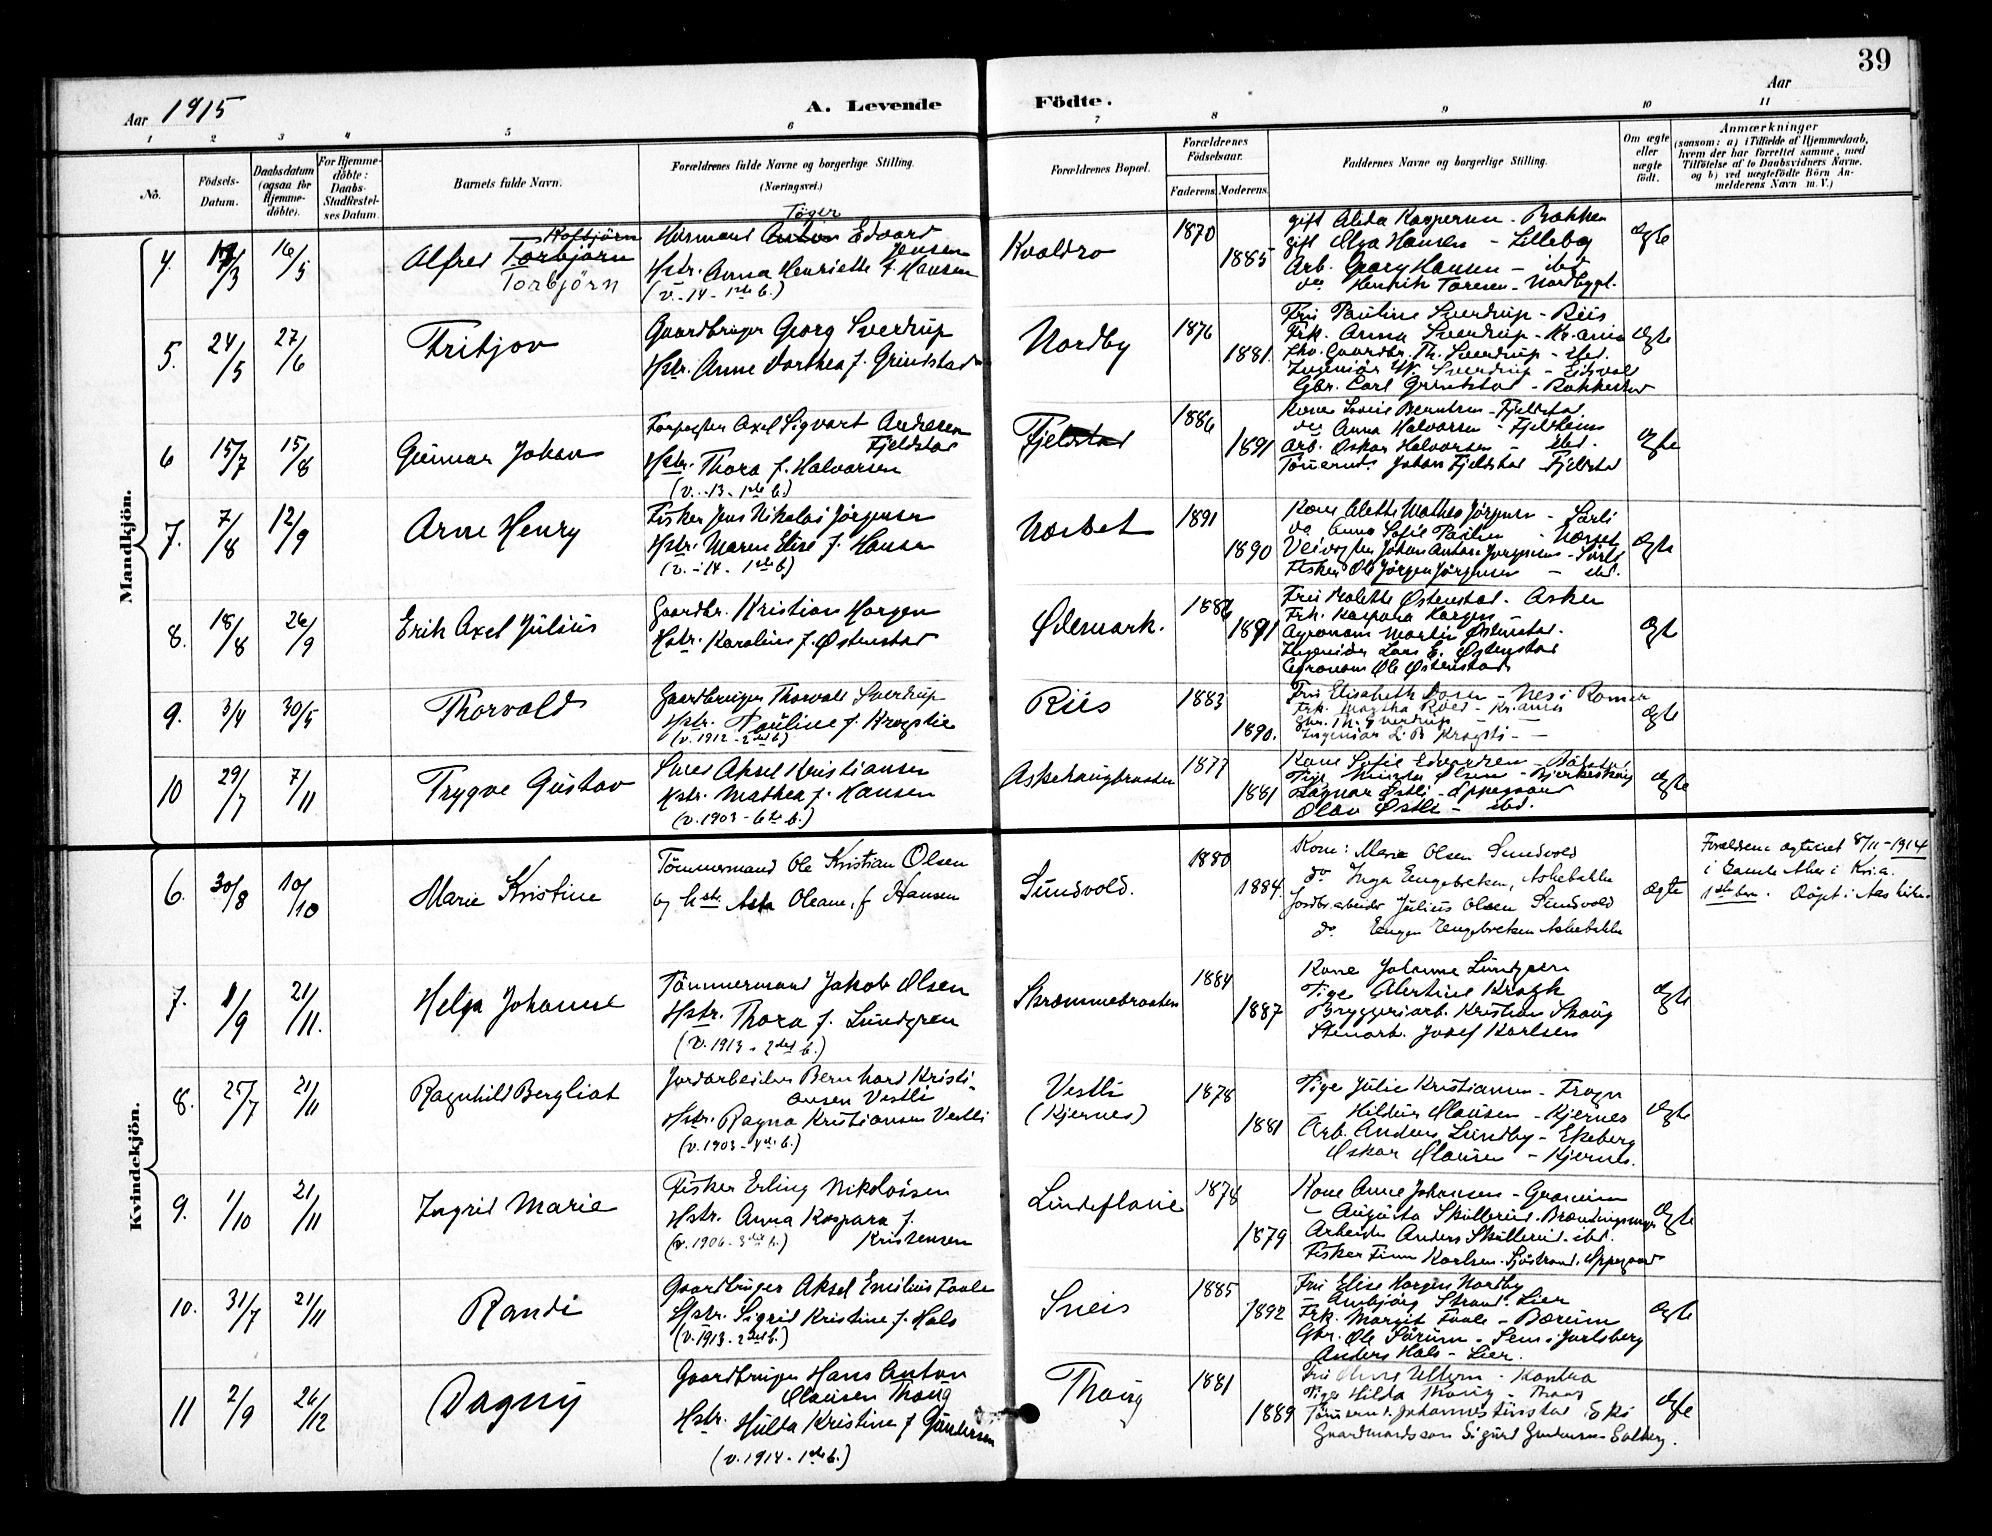 39
Aar 1915
A. Levende Födte.
Aar
1 2 3 4 5 6 7 8 9 10 11
No.
Födsels-Datum.
Daabsdatum (ogsaa för Hjemmedöbte).
For Hjemmedöbte: Daabs-Stadfæstelses Datum.
Barnets fulde Navn.
Forældrenes fulde Navne og borgerlige Stilling. (Næringsvei.)
Forældrenes Bopæl.
Forældrenes Födselsaar.
Faderens. Moderens.
Faddernes Navne og borgerlige Stilling.
Om ægte eller uægte födt.
Anmærkninger
(saasom: a) i Tilfælde af Hjemmedaab, hvem der har forrettet samme, med Tilföielse af to Daabsvidners Navne. og b) ved uægtefödte Börn Anmelderens Navn m. V.)
Mandkjön.
4. /3 16/5 Alfred Torbjörn
Torbjörn
Töger
Herman Anton Edvard Jensen
Hstr. Anna Henriette f. Hansen
(v. -14 - 1ste b.)
1870 1885
gift Alida Kaspersen - Bakken
gift Olga Hansen - Lillebo
Arb. Georg Hansen - ibd
do Henrik Toresen - Nordbypl.
ægte
5. 24/5 27/6 Fritjov
Gaardbruger Georg Sverdrup
Hstr. Anne Dorthea f. Grindstad
Nordby 1876 1881
Fru Pauline Sverdrup - Riis
Frk. Anna Sverdrup - Kr.ania
Gaardbr. Th. Sverdrup - ibd.
Ingeniör W. Sverdrup - Eidsvold
Gbr. Carl Grindstad - Rakkestad
ægte
6 15/7 15/8 Gunnar Johan
Axel Sigvart Andresen Fjeldstad
Hstr. Thora f. Halvorsen
(v. -13 - 1ste b.)
Fjeldstad 1886 1891
Kone Lovise Berntsen - Fjeldstad.
do Anna Halvorsen - Fjeldheim
Arb. Oskar Halvorsen - ibd.
Tömerm. Johan Fjeldstad Fjeldstad
ægte
7. 7/8 12/9 Arne Henry
Fisker Jens Nikolai Jörgensen
Hstr. Maren Elise f. Hansen
(v. -14 - 1ste b)
Næset 1891 1890
Kone Alette Mathea Jörgensen - Sørli
do Anna Sofie Paulsen - Næset
Veivogter Johan Anton Jörgensen - Sörli
Fisker Ole Jörgen Jörgensen - ibd.
ægte
8. 18/8 26/9 Erik Axel Julius
Gaardbr. Kristian Horgen
Hstr. Karoline f. Østenstad
Ødemark. 1886 1891
Fru Østenstad. Asker
Frk. Kaspara Horgen
Agronom Martin Østenstad.
Ingeniør Lars E. Østenstad
Agronom Ole Østenstad
ægte
9. 3/4 30/5 Thorvald
Gaardbruger Thorvald Sverdrup
Hstr. Pauline f. Krogstie
(v. 1912 - 2det b)
Riis 1883 1890.
Fru Elisabeth - Nes i Romer
Frk. Kr.ania
Gbr. Th. Sverdrup
Ingeniør
ægte
10 29/7 7/11 Trygve Gustav
Smed Aksel Kristiansen
Hstr. Mathea f. Hansen
(v. 1903 - 6te b.)
Askehaugbraaten 1877 1881
Kone Sofie Edvardsen
Pige Olsen - Bjerkeskaug
Ragnar Østli - Oppegaard
Olav Østli - ibd.
ægte
Kvindekjön.
6. 30/8 10/10 Marie Kristine
Tömmermand Ole Kristian Olsen
og hstr. Asta Oleane, f Hansen
Sundvold. 1880 1884.
Kone: Marie Olsen Sundvold
do Inga Engebretsen, Askebakke
Jordbr.arbeider Julius Olsen Sundvold
do Eugen Engebretsen Askebakke
ægte
Forældrene ægteviet 8/11 - 1914
i Gamle Aker i Kr.ia.
1ste barn. Döpt i Aas kirke.
7. 1/9 21/11. Helga Johanne
Tömmermand Jakob Olsen
Hstr. Thora f. Lundgren
(v. 1913 - 2det b.)
Skrømmebraaten 1884 1887
Kone Johanne Lundgren
Pige Albertine Krogh
Bryggeriarb. Kristian Skaug
Stenarb. Josef Karlsen
ægte
8. 25/7 21/11 Ragnhild Bergliot
Jordarbeider Bernhard Kristiansen Vestli
Hstr. Ragna Kristiansen Vestli
(v. 1903 - 4de b.)
Vestli (Kjernes) 1878 1881
Pige Julie Kristiansen - Frogn
Hildur Clausen - Kjernes
Arb. Anders Lundby - Ekeberg
Oskar Clausen - Kjernes.
ægte
9. 1/10 21/11 Ingrid Marie
Fisker Erling Nikolaisen
Hstr. Anna Kaspara f. Kristensen
(v. 1906 - 3die b.)
Lindeflaue 1878 1879
Kone Anne Johansen - Granheim
- Augusta Skullerud
Arbeider Anders Skullerud - ibd.
Fisker Finn Karlsen - Sjöstrand, Oppegaard
ægte
10. 31/7 21/11 Randi
Gaardbruger Aksel Emilius Faale
Hstr. Sigrid Kristine f. Hals
(v. 1913 - 2det b.)
Sneis 1885 1892
Fru Elise Horgen Nordby
- Anbjörg Strand - Lier
Frk. Margit Faale - Bærum
Gbr. Ole Sörum - Sem i Jarlsberg
Anders Hals - Lier.
ægte
11 2/9 26/12 Dagny
Gaardbruger Hans Anton Clausen Thaug
Hstr. Hulda Kristine f Gundersen
(v. 1914 - 1ste b.)
Thaug 1881 1889
Pige Hilda Thaug - Thaug
Tömerm. Johannes Finstad Ski
Gaardmandssön Sigurd Gundersen - Solberg.
ægte